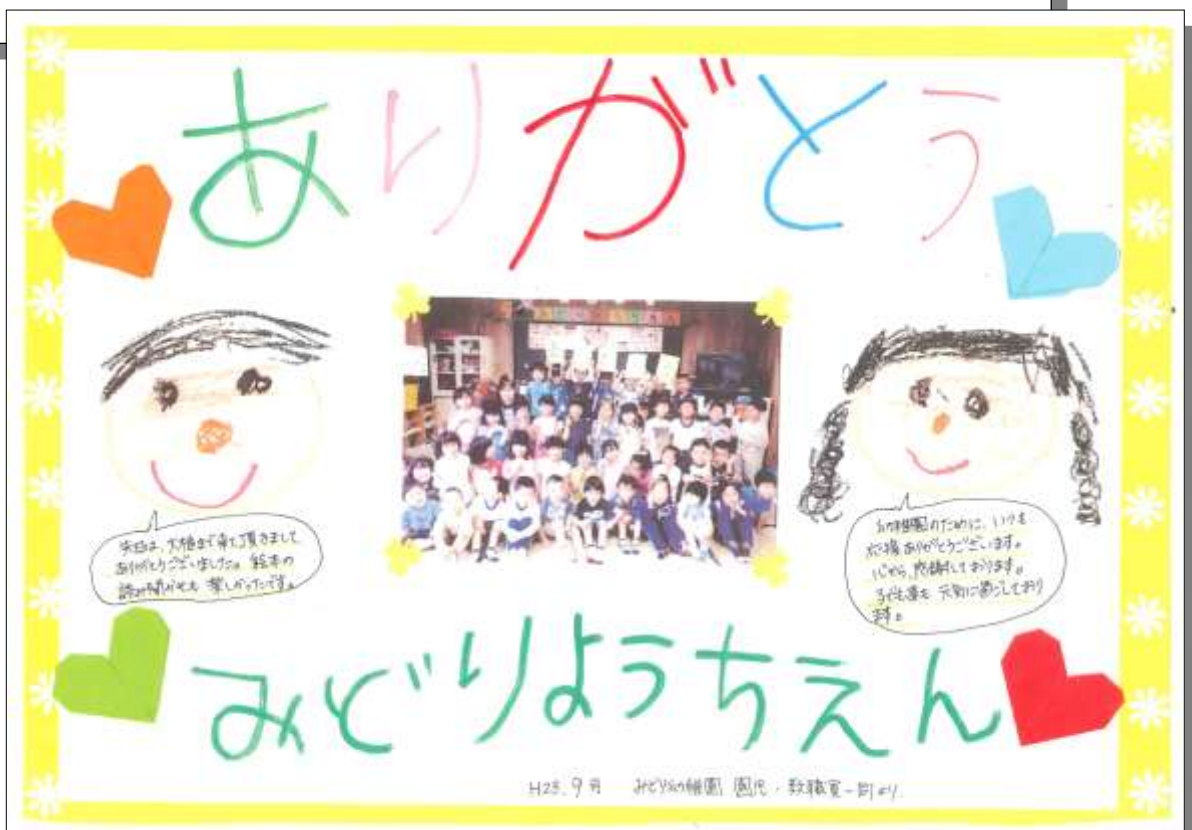 ありがとう
先日は、大槌まで来て頂きまして
ありがとうございました。絵本の
読み聞かせも楽しかったです。
幼稚園のために、いつも
応援ありがとうございます。
心から、感謝しております。
子ども達も元気に過ごしており
ます。
みどりようちえん
H25.9月 みどり幼稚園 園児・教職員一同より.